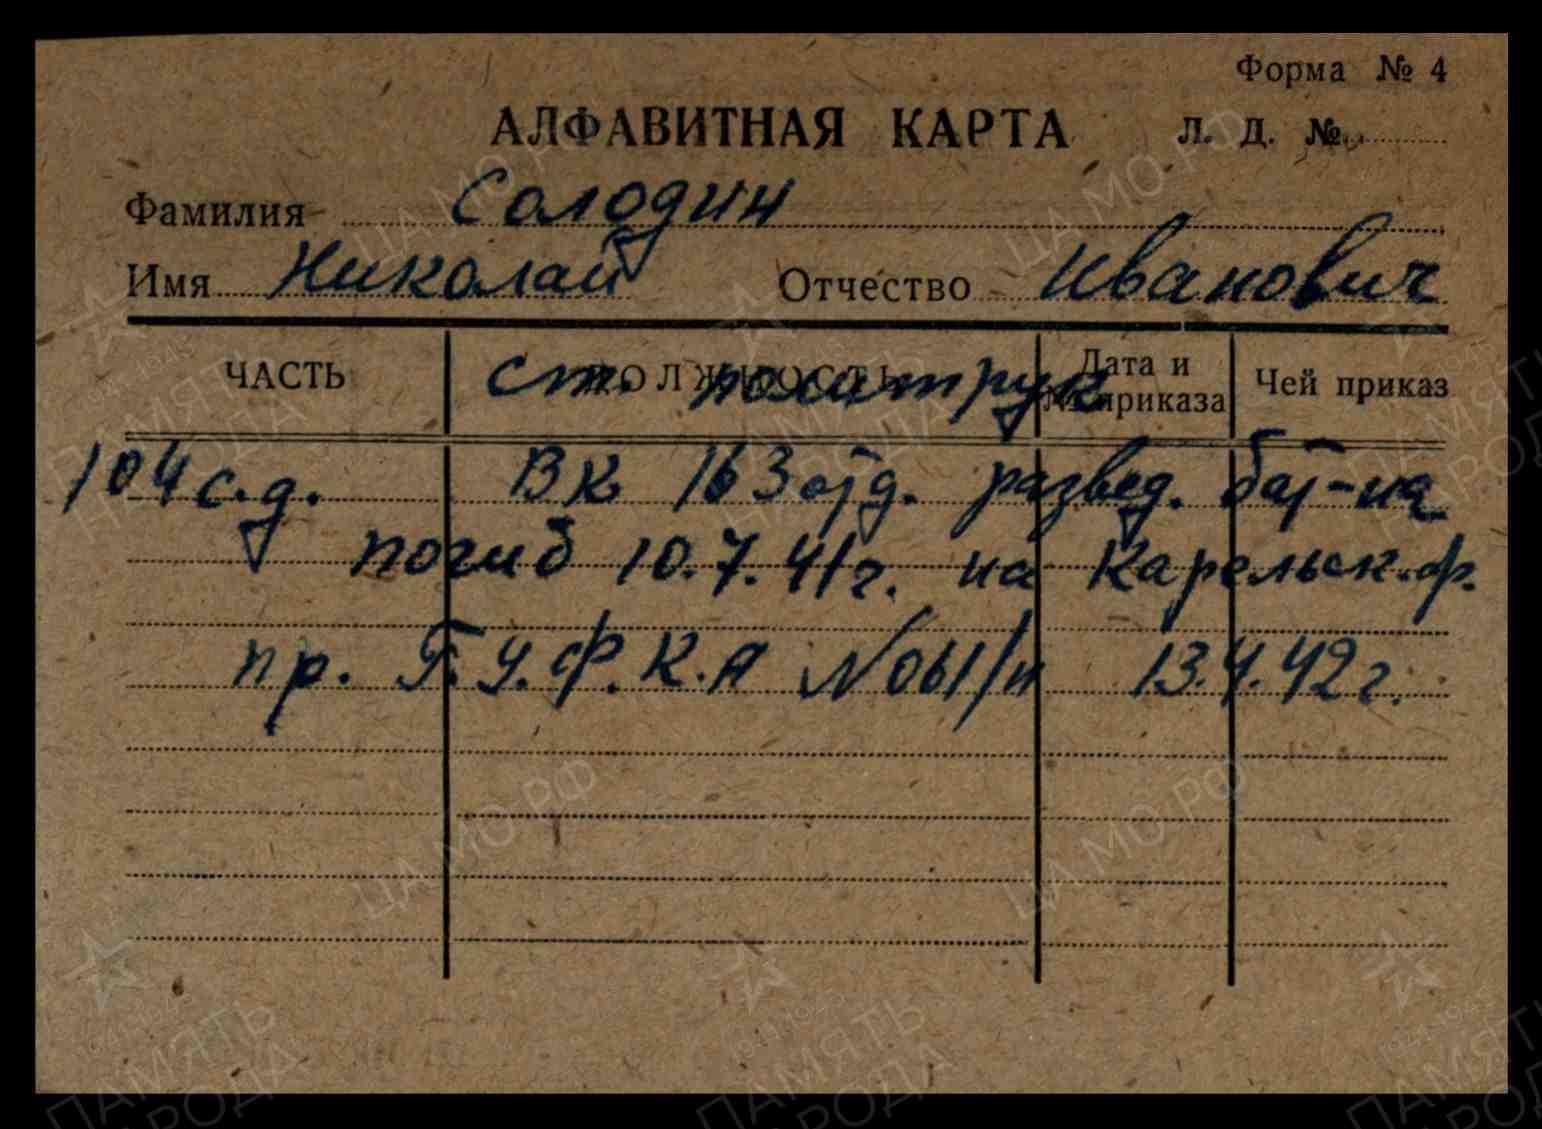 Форма № 4
АЛФАВИТНАЯ КАРТА Л. Д. №
Фамилия Солодин
Имя Николай Отчество Иванович
ЧАСТЬ ДОЛЖНОСТЬ Дата и № приказа Чей приказ
ст. политрук
104 с.д. ВК 163 отд. развед. бат-на
погиб 10.7.41г. на Карельск.ф.
пр. Г.У.Ф.К.А № 061/н 13.4.42г.
ЦА МО РФ
ПАМЯТЬ НАРОДА
1941-1945